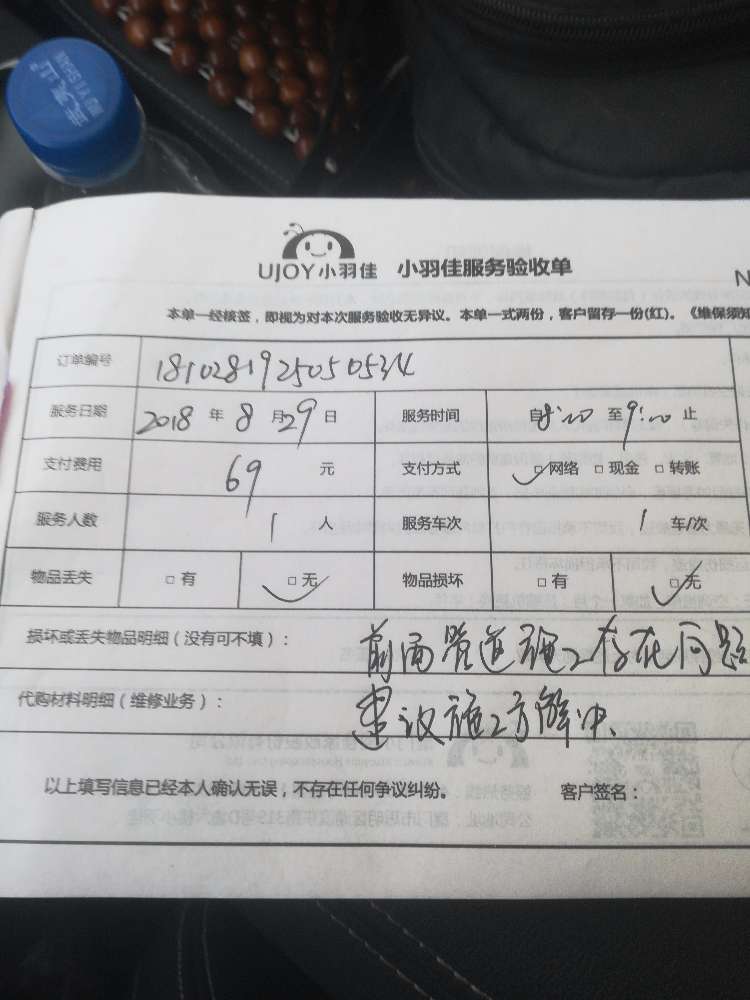 武夷山
WU YI SHAN
UJOY小羽佳 小羽佳服务验收单
N
本单一经核签，即视为对本次服务验收无异议。本单一式两份，客户留存一份(红)。《维保须知
订单编号 18102819250505314
服务日期 2018 年 8 月 29 日 服务时间 自8:00 至 9:00 止
支付费用 69 元 支付方式 ☑网络 □现金 □转账
服务人数 1 人 服务车次 1 车/次
物品丢失 □有 ☑无 物品损坏 □有 ☑无
损坏或丢失物品明细（没有可不填）： 前面管道施工存在问题
代购材料明细（维修业务）： 建议施工方解决
以上填写信息已经本人确认无误，不存在任何争议纠纷。 客户签名：